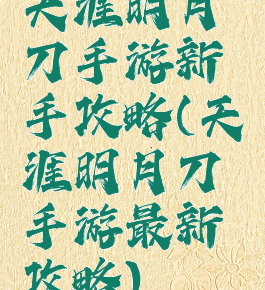 天涯明月
刀手游新
手攻略(天
涯明月刀
手游最新
攻略)